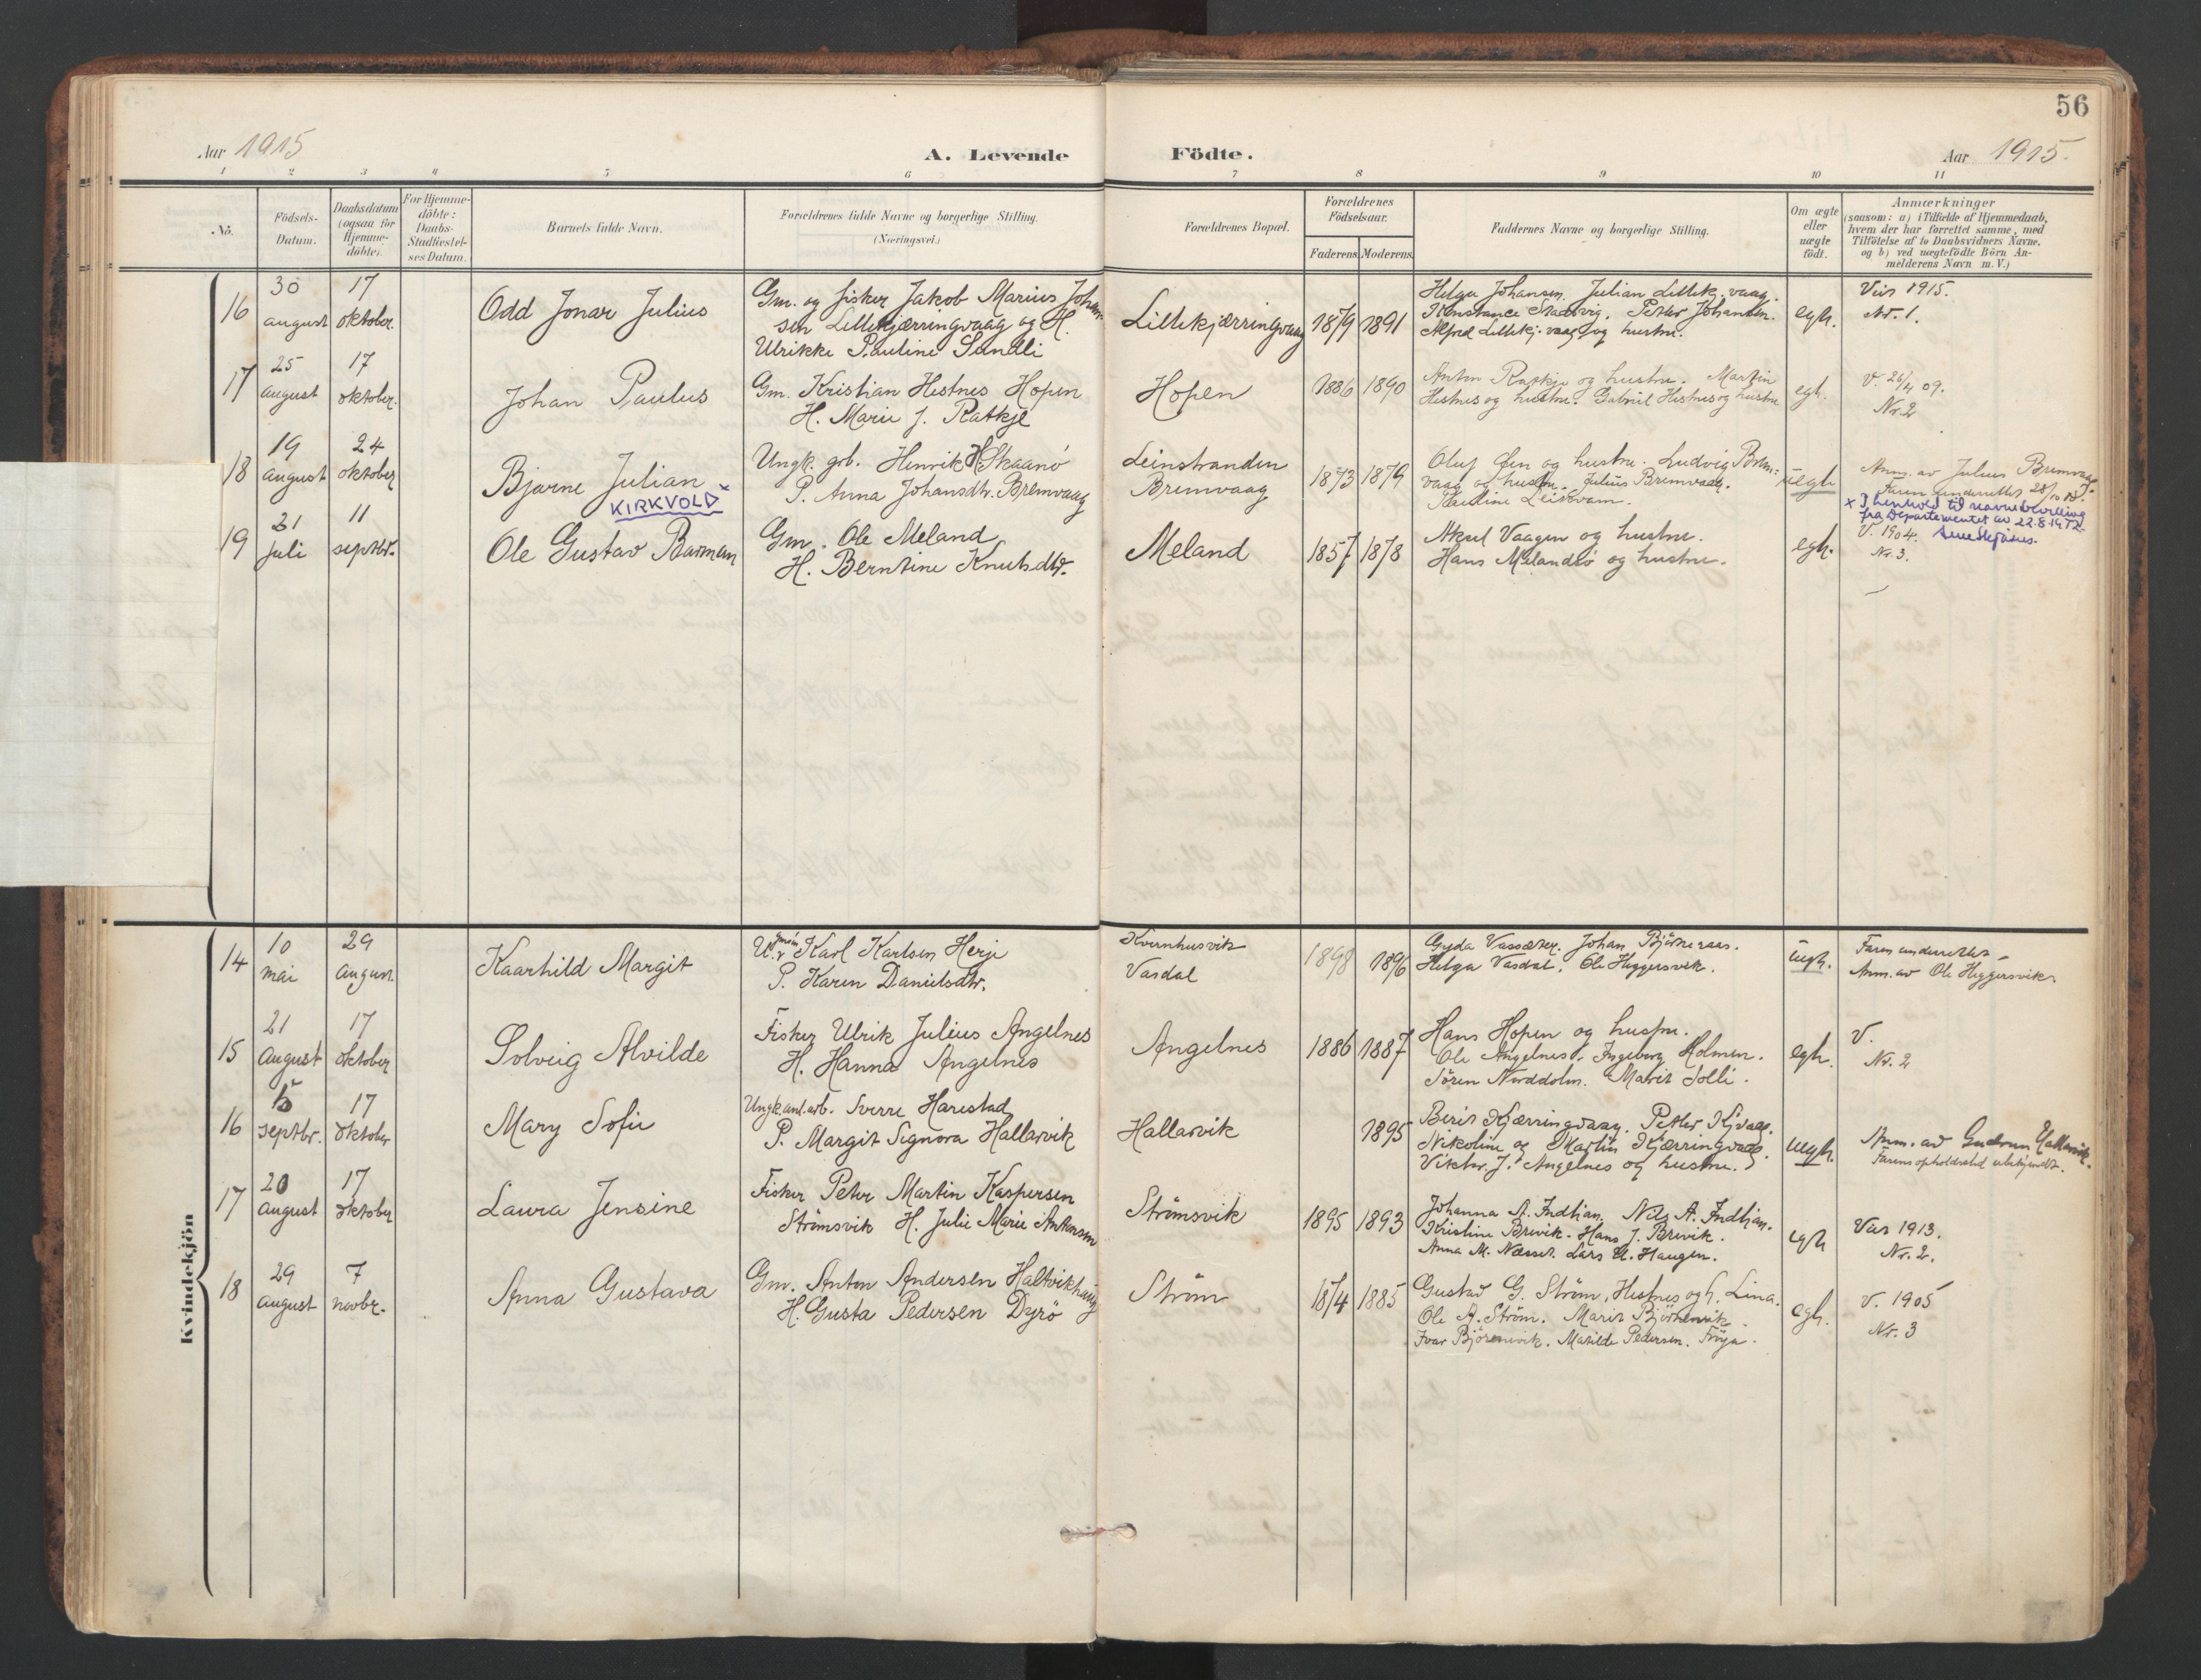 56
Aar 1915
A. Levende Födte.
Aar 1915.
1 2 3 4 5 6 7 8 9 10 11
No.
Födsels-Datum.
Daabsdatum (ogsaa for Hjemme-döbte).
For Hjemme-döbte: Daabs-Stadfæstelses Datum.
Barnets fulde Navn.
Forældrenes fulde Navne og borgerlige Stilling. (Næringsvei.)
Forældrenes Bopæl.
Forældrenes Födselsaar.
Faderens. Moderens.
Faddernes Navne og borgerlige Stilling.
Om ægte eller uægte födt.
Anmærkninger (saasom: a) i Tilfælde af Hjemmedaab, hvem der har forrettet samme, med Tilföielse af to Daabsvidners Navne, og b) ved uægtefödte Börn Anmelderens Navn m. V.)
16
30 august
17 oktober.
Odd Jonar Julius
Gm. og fisker Jakob Marius Johan-
sen Lillekjærringvaag og H.
Ulrikke Pauline Sandli
Lillekjærringvaag
1879 1891
Helga Johansen. Julian Lillekj.vaag.
Konstance Stadsvig. Petter Johansen.
Alfred Lillekj.vaag og hustru.
egh.
Vis 1915.
Nr. 1.
17
25 august
17 oktober.
Johan Paulus
Gm. Kristian Hestnes Hopen
H. Marie J. Ratkje
Hopen
1886 1890
Anton Ratkje og hustru. Martin
Hestnes og hustru. Gabriel Hestnes og hustru
egh.
V. 26/4 09.
Nr. 2
18
19 august
24 oktober
Bjarne Julian
KIRKVOLD x
Ungk. grb. Henrik H. Skaanö
P. Anna Johansdtr. Bremvaag
Leinstranden
Bremvaag
1873 1879
Oluf Öen og hustru. Ludvig Brem-
vaag og hustru. Julius Bremvaag.
Pauline Leikvam.
uegh
Anm. av Julius Bremvaag
Faren underrettet 28/10 15.
x I henhold til navnebevilling
fra Departementet av 22.8.1972.
19
21 juli
11 septbr.
Ole Gustav Barman
Gm. Ole Meland
H. Berntine Knutsdtr.
Meland
1857 1878
Aksel Vaagen og hustru.
Hans Melandsö og hustru.
egh.
V. 1904.
Nr. 3.
Kvindekjön
14
10 mai
29 august.
Kaarhild Margit
U. Karl Karlsen Herje
P. Karen Danielsdtr.
Kvernhusvik
Vasdal
1898 1896
Gyda Vassæter. Johan Björneraas.
Helga Vasdal. Ole Heggersvik.
uegh.
Faren underrettet
Anm. av Ole Heggersvik.
15
21 August
17 oktober
Solveig Alvilde
Fisker Ulrik Julius Angelnes
H. Hanna Angelnes
Angelnes
1886 1887
Hans Hopen og hustru.
Ole Angelnes. Ingeborg Holmen.
Sören Norddolm. Marit Solli.
egh.
V.
Nr. 2
16
5 septbr.
17 oktober
Mary Sofie
Ungk. anl.arb. Sverre Harestad
P. Margit Signora Hallarvik
Hallarvik
1895
Berit Kjærringvaag. Petter Kj.vaag.
Nikoline og Martin Kjærringvaag.
Viktor J. Angelnes og hustru.
uegh.
Anm. av Gudrun Hallarvik.
Farens opholdssted ubekjendt.
17
20 August
17 oktober
Laura Jensine
Fisker Peter Martin Kaspersen
Strömsvik H. Julie Marie Antonsen
Strömsvik
1895 1893
Johanna A. Indtian. Nils A. Indtian.
Kristine Brevik. Hans J. Brevik.
Anna M. Næsset. Lars A. Haugen.
egh
Vis 1913.
Nr. 2.
18
29 august
7 novbr.
Anna Gustava
Gm. Anton Andersen Haltvikhaug
H. Gusta Pedersen Dyrö
Ström
1874 1885
Gustav G. Ström, Hestnes og h. Lina.
Ole A. Ström. Marit Björnenvik.
Ivar Björnenvik. Matilde Pedersen. Fröya.
egh.
V. 1905
Nr. 3